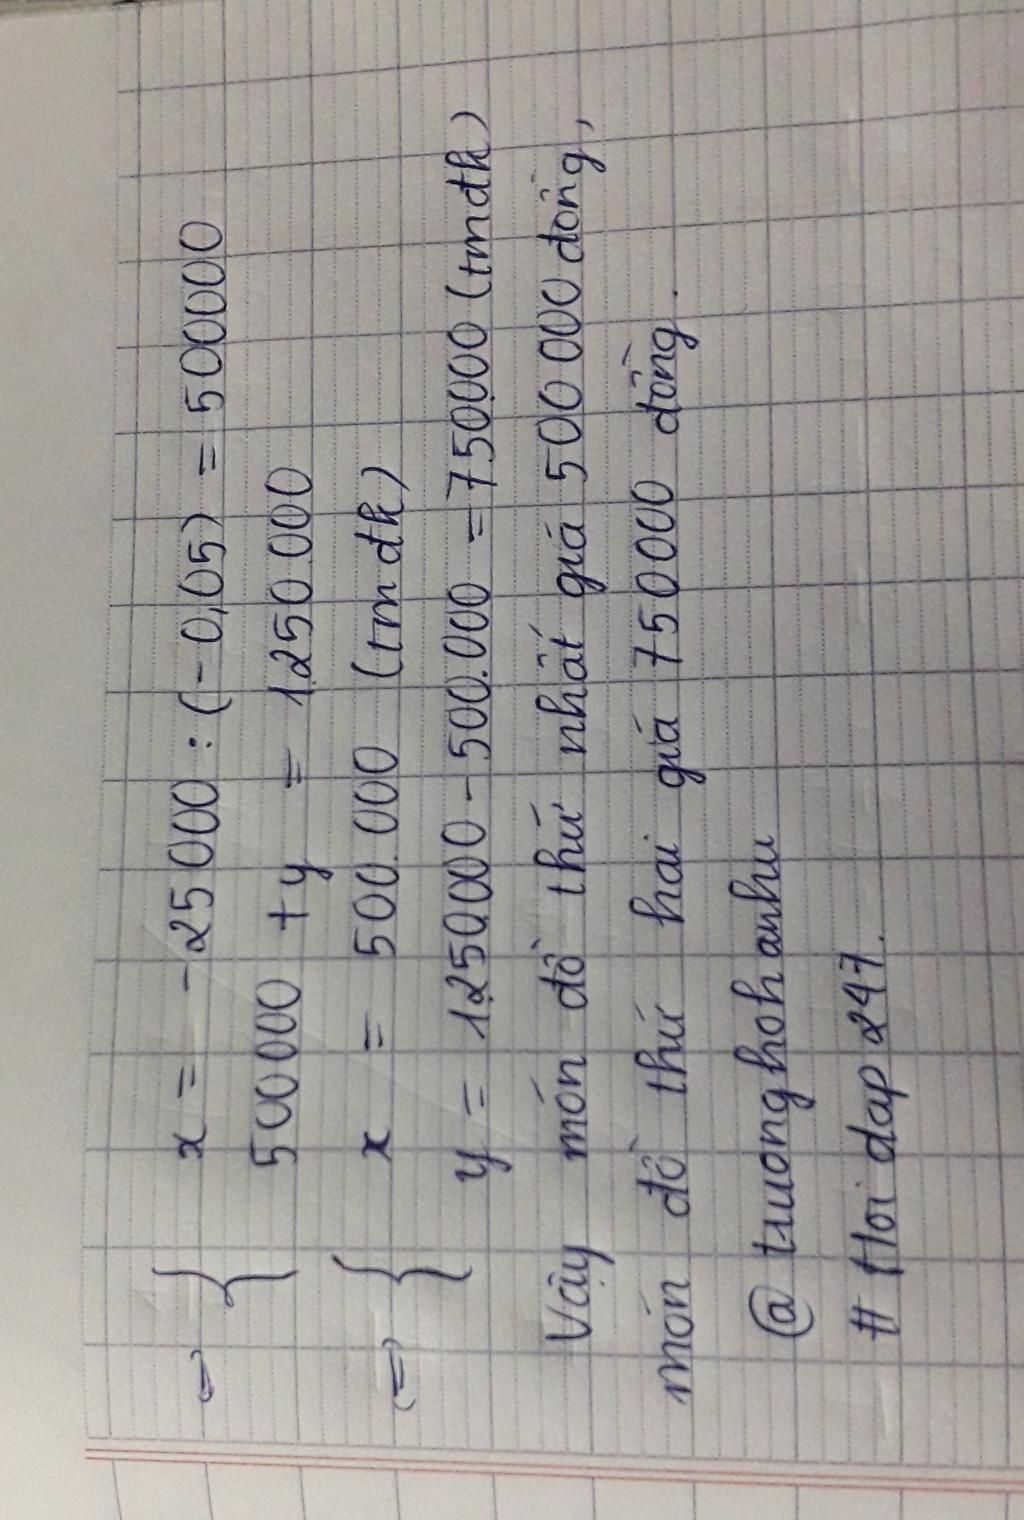 ⇔ { x = -25000 : (-0,05) = 500000
500000 + y = 1.250.000
⇔ { x = 500.000 (tmđk)
y = 1.250000 - 500.000 = 750000 (tmđk)
Vậy món đồ thứ nhất giá 500 000 đồng,
món đồ thứ hai giá 750 000 đồng.
@ truonghohanhu
# Hoi dap 247.